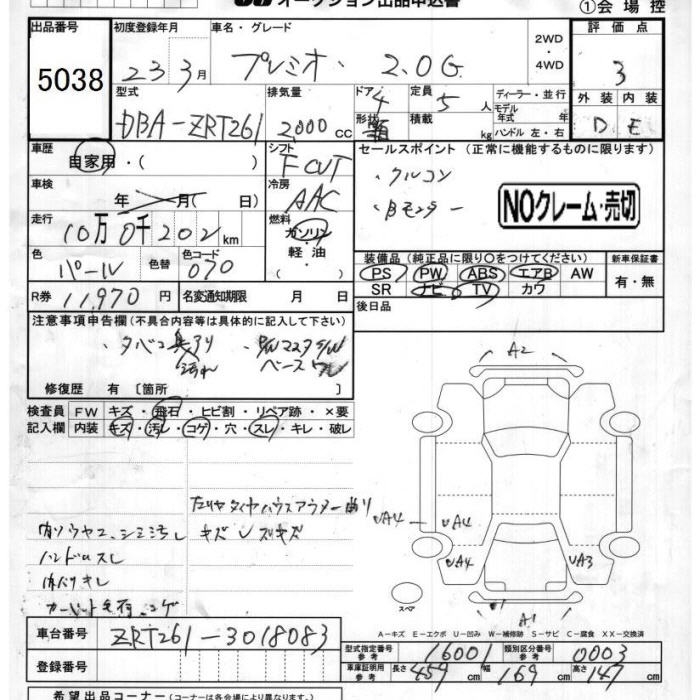 オークション出品申込書
①会場控
出品番号 初度登録年月 車名・グレード 評価点
5038 23年3月 プレミオ 2.0G 2WD・4WD 3
型式 排気量 ドア 定員 ディーラー・並行 外装 内装
DBA-ZRT261 2,000cc 4 5人 モデル年式 年式 D E
形状 積載 kg ハンドル 左・右
車歴 シフト セールスポイント (正常に機能するものに限ります)
自家用・( ) F CVT ・クルコン
車検 冷房 ・Bモニター
年 月( 日) AAC NOクレーム・売切
走行 燃料
10万0千202km ガソリン・軽油・
色 色替 カラーコード 装備品 (純正品に限り〇をつけてください) 新車保証書
パール 070 PS PW ABS エアB AW 有・無
SR ナビ TV カワ
R券 11,970円 名変通知期限 月 日 後日品
注意事項申告欄 (不具合内容等は具体的に記入して下さい)
・タバコ臭アリ
修復歴 有 [箇所
A2
検査員 FW キズ・飛石・ヒビ割・リペア跡・×要
記入欄 内装 キズ・汚レ・コゲ・穴・スレ・キレ・破レ
左リヤタイヤハウスアウター曲り
キズ
シミ汚レ
ハンドルスレ
UA4 UA4
UA4 UA3
スペア
A1
A-キズ E-エクボ U-凹み W-補修跡 S-サビ C-腐食 XX-交換済
車台番号 ZRT261-3018083
型式指定番号 参考 16001 類別区分番号 参考 0003
登録番号
車庫証明用 参考 長さ 459cm 幅 169cm 高さ 147cm
希望出品コーナー (コーナーは各会場により異なります。)